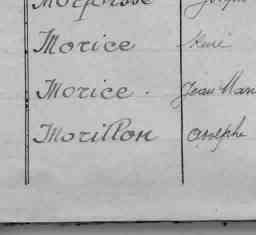 Morice René
Morice. Jean Mar
Morillon Adolphe